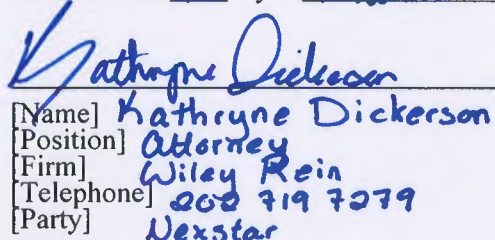 Kathryne Dickerson
[Name] Kathryne Dickerson
[Position] Attorney
[Firm] Wiley Rein
[Telephone] 202 719 7279
[Party] Nexstar